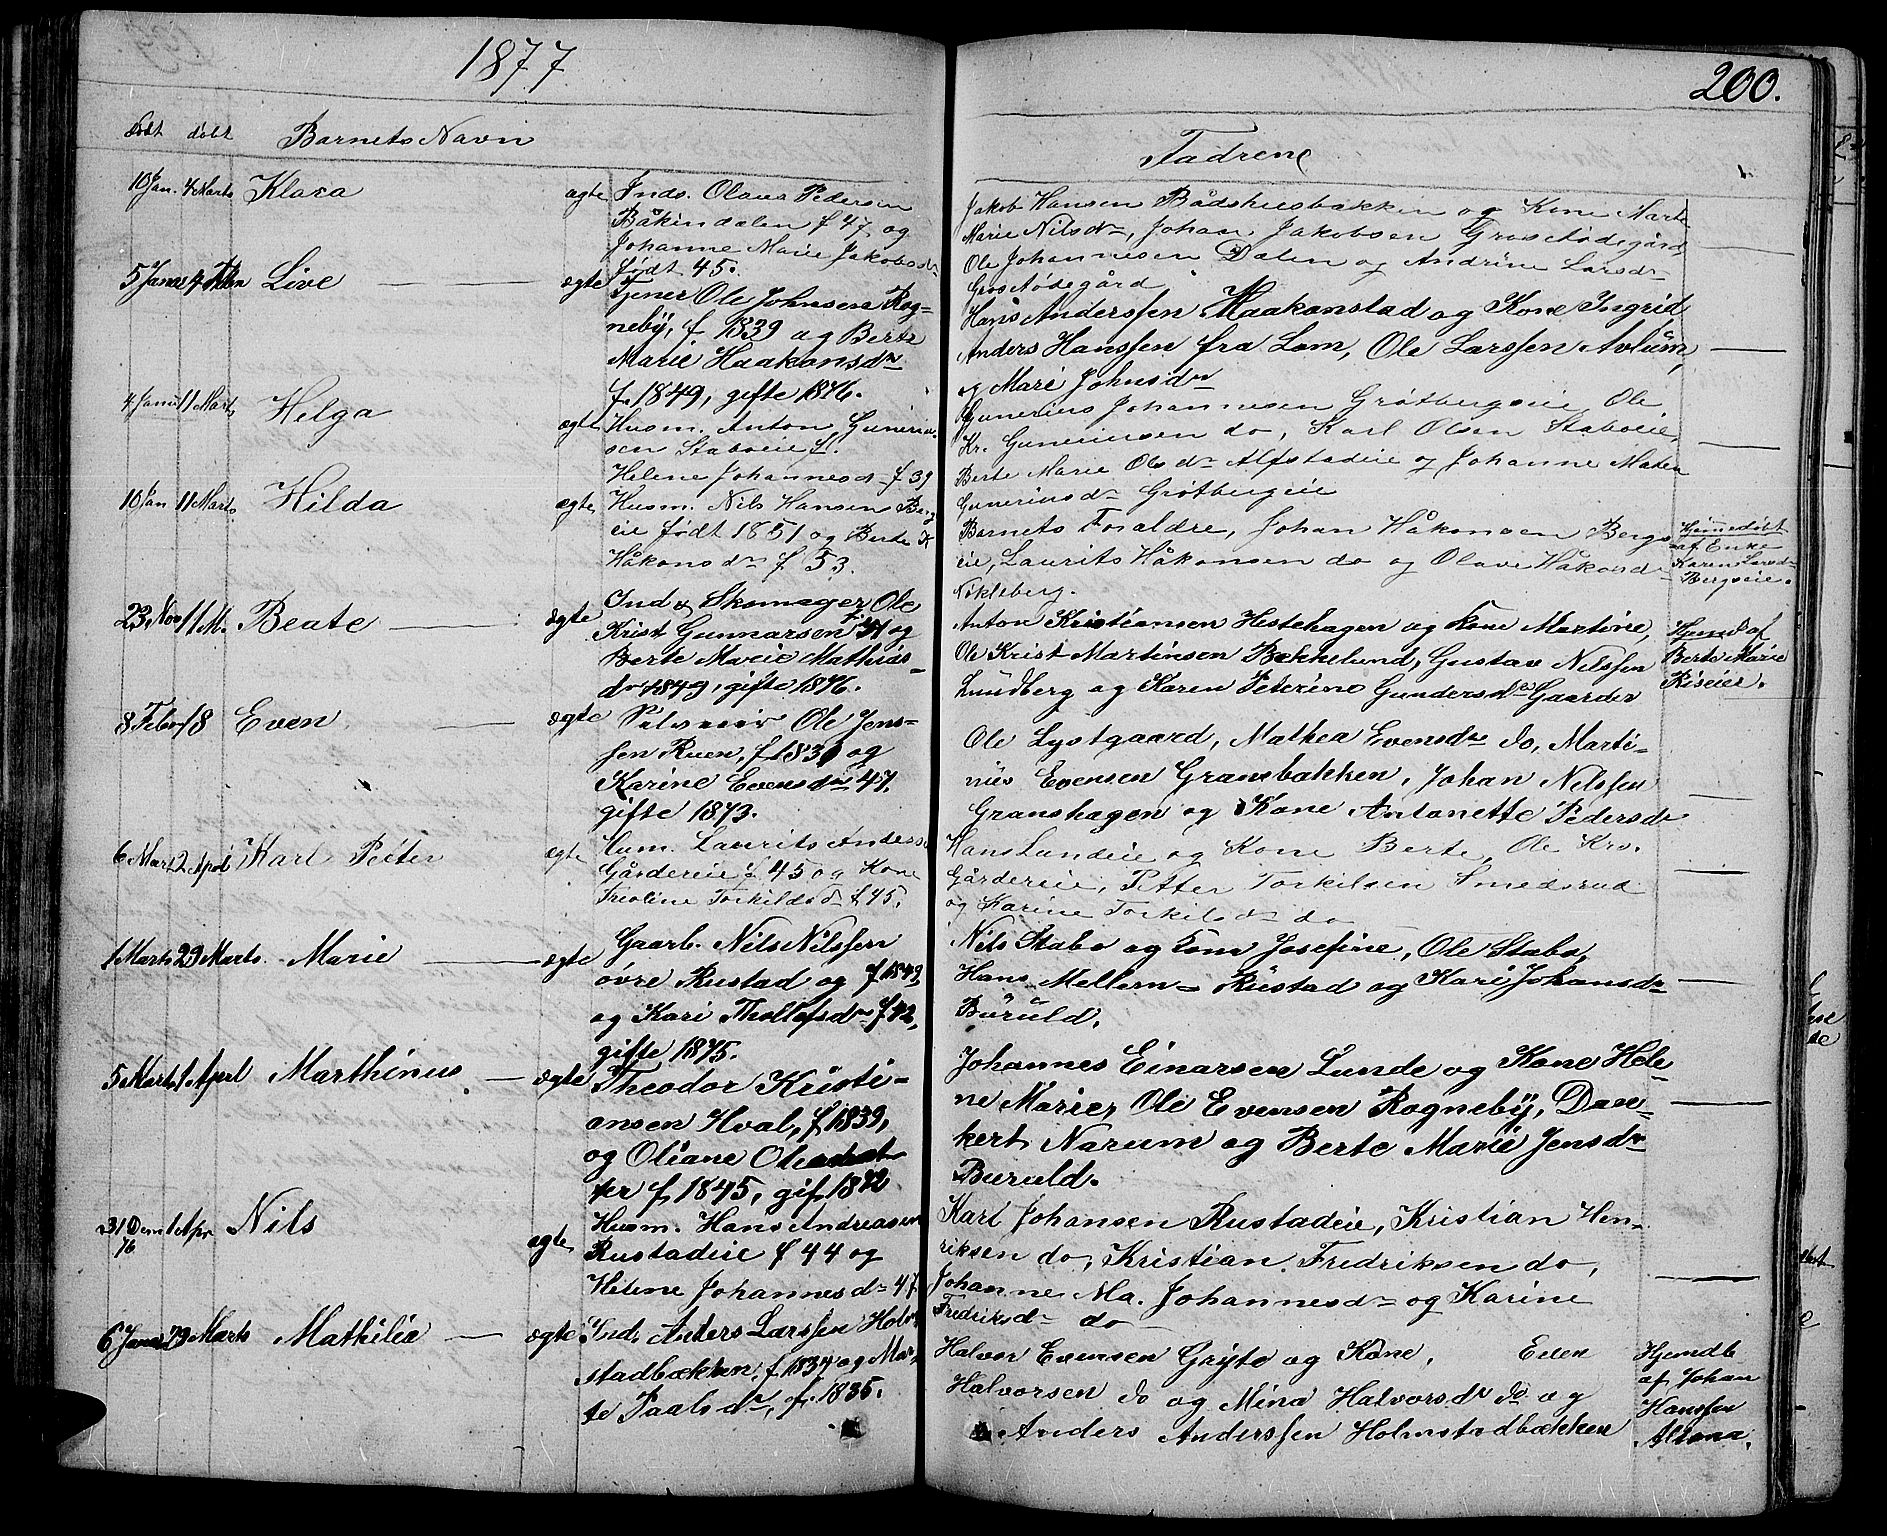 1877
200.
født døbt Barnets Navn
Fadrene
10 Jan. 4 Marts Klara ægte Inds. Olaus Pedersen
Båkindalen f 47 og
Johanne Marie Jakobsd.
født 45.
Jakob Hansen Bådshusbakken og Kone Marte
Marie Nilsdr, Johan Jakobsen Grosetødegård,
Ole Johannesen Dalen og Andrine Larsdr
Grosetødegård
5 Janu 4 Live — — ægte Tjener Ole Johnsen Rog-
neby, f 1839 og Berte
Marie Haakonsdr
f. 1849, gifte 1876.
Hans Anderssen Haakonstad og Kone Ingrid
Anders Hanssen fra Lom, Ole Larssen Avlum, —
og Mari Johnsdr
4 Janu 11 Marts Helga ægte Husm. Anton Guneriu-
sen Staboeie f.
Helene Johannesd f 39
Gunerius Johannesen Grøtbergseie, Ole
Kr. Guneriusen do, Karl Olsen Staboeie, —
Berte Marie Olsdr Alfstadeie og Johanne Matea
Guneriusdr Grøtbergeie
10 Jan 11 Marts. Hilda ægte Husm. Nils Hansen Berg
eie født 1851 og Berte K
Håkonsdr f 53.
Barnets Foraldre, Johan Håkonsen Bergs
eie, Laurits Håkonsen do og Olave Håkonsd
Nikleberg.
Hjemmedøbt
af Enke
Karen Larsd
Bergseie.
23 Nov 11 M. Beate — ægte Ind & Skomager Ole
Krist Gunnarsen f 51 og
Berte Marie Mathias-
dr 1849, gifte 1876.
Anton Kristiansen Hestehagen og Kone Martine,
Ole Krist Martinsen Bekkelund, Gustav Nilssen
Lundberg og Karen Peterine Gundersdr Gaarder
Hjemd af
Berte Marie
Riseier.
8 Febr 18 Even — ægte Ole Jens-
sen Ruen, f 1831 og
Karine Evensdr 47.
gifte 1873.
Ole Lystgaard, Mathea Evensdr do, Marti-
nus Evensen Gransbakken, Johan Nilssen —
Granshagen og Kone Antonette Pedersdr
6 Mart 2 April Karl Peter ægte Hum. Laurits Anders
Gårdereie f 45 og Kone
Treoline Torkildsdr f 45.
Hans Lundeie og Kone Berte, Ole Krs. —
Gårdereie, Petter Torkilsen Smedsrud
og Karine Torkilsdr do
1 Marts 29 Marts. Marie — ægte Gaarb. Nils Nilssen
øvre Rustad og f 1849
og Kari Thollefsdr f 42,
gifte 1875.
Nils Stabo og Kone Josefine, Ole Stabo,
Hans Mellem- Rustad og Kari Johansdr —
Buruld.
5 Marts 1 Aprl Marthinus. — ægte Theodor Kristi-
ansen Hval, f 1839,
og Oliane
ter f 1845, gif 1872
Johannes Einarsen Lunde og Kone Hele-
ne Marie, Ole Evensen Rogneby, Dan- —
kert Narum og Berte Marie Jensdr
Buruld.
31 Dem 1 Apr Nils ægte Husm. Hans Andreasen
76
Rustadeie f 44 og
Helene Johannesdr 47
Karl Johansen Rustadeie, Kristian Hen-
riksen do, Kristian Fredriksen do,
Johanne Ma. Johannesdr og Karine —
Fredriksdr do
6 Janu 29 Marts Mathilia — ægte Ind. Anders Larssen Holm
stadbækken, f 1834 og Mar-
te Paalsdr, f. 1835.
Halvor Evensen Gryte og Kone, Even
Halvorsen do og Mina Halvorsdr do og
Anders Anderssen Holmstadbækken
Hjemdb
af Johan
Hanssen